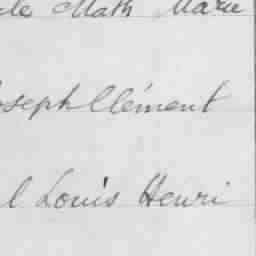 Math Marie
Joseph Clément
l Louis Henri